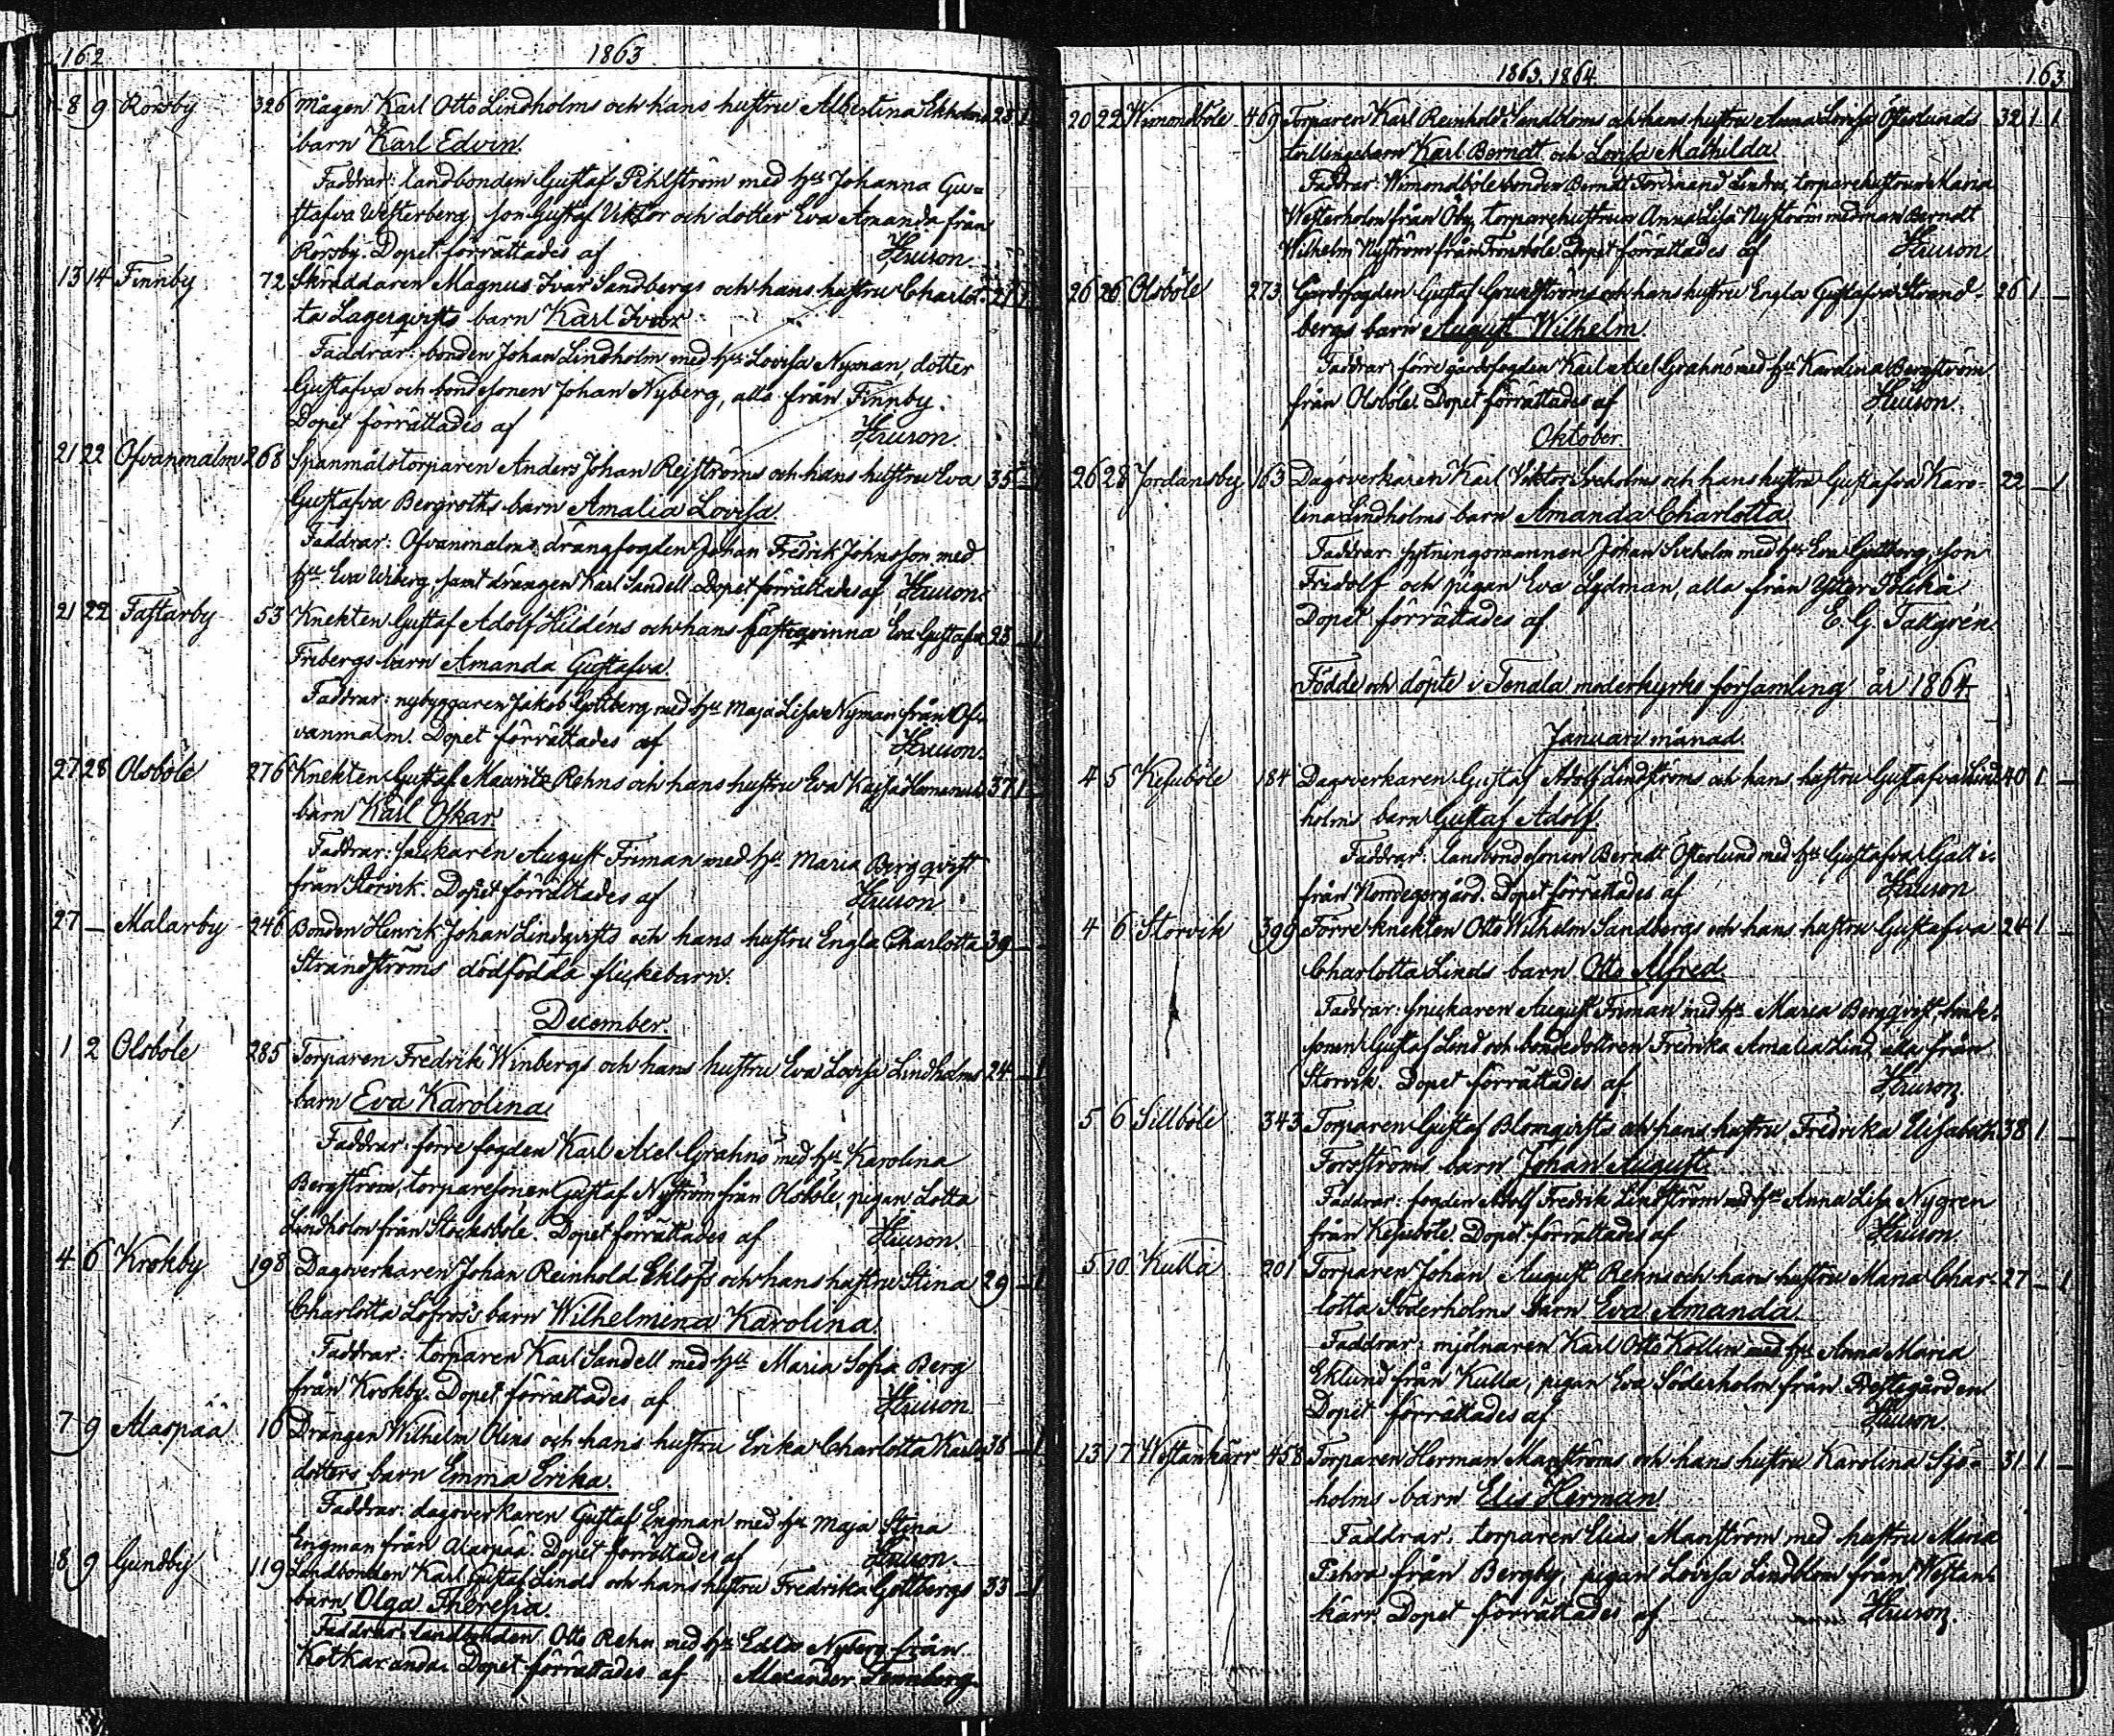 162 1863
8 9 Rörsby 326 Mågen Karl Otto Lindholms och hans hustru Albertina Ekholms 25 1
barn Karl Edvin.
Faddrar: landbonden Gustaf Pihlström med hu Johanna Gu=
stafva Westerberg, son Gustaf Viktor och dotter Eva Amanda från
Rörsby. Dopet förrättades af
13 14 Finnby 72 Skräddaren Magnus Ivar Sandbergs och hans hustru Charlot=
ta Lagerqvists barn Karl Ivar
Faddrar: bonden Johan Lindholm med hu Lovisa Nyman, dotter
Gustafva och bondesonen Johan Nyberg, alla från Finnby.
Dopet förrättades af
21 22 Ofvanmalm 268 Spanmålstorparen Anders Johan Rejströms och hans hustru Eva 35 – 1
Gustafva Bergroths barn Amalia Lovisa.
Faddrar: Ofvanmalms drängfogden Johan Fredrik Johnsson med
hu Eva Wiberg, samt drängen Karl Sandell. Dopet förrättades af
21 22 Fastarby 53 Knekten Gustaf Adolf Hildéns och hans fästeqvinna Eva Gustafva 23 – 1
Fribergs barn Amanda Gustafva.
Faddrar: nybyggaren Jakob Gottberg med hu Maja Lisa Nyman från Of=
vanmalm. Dopet förrättades af
27 28 Olsböle 276 Knekten Gustaf Mauritz Rehns och hans hustru Eva Kajsa 37 1 –
barn Karl Oskar.
Faddrar: snickaren August Friman med hu Maria Bergqvist
från Storvik. Dopet förrättades af
27 – Malarby 246 Bonden Henrik Johan Lindqvists och hans hustru Engla Charlotta 39 – –
Strandströms dödfödda flickebarn.
December.
1 2 Olsböle 285 Torparen Fredrik Winbergs och hans hustru Eva Lovisa Lindholms 24 – 1
barn Eva Karolina
Faddrar: förre fogden Karl Axel Grahns med hu Karolina
Bergström, torparesonen Gustaf Nyström från Olsböle, pigan Lotta
Lindholm från Stocksböle. Dopet förrättades af
4 6 Krokby 198 Dagsverkaren Johan Reinhold Eklöfs och hans hustru Stina 29 – 1
Charlotta Löfros's barn Wilhelmina Karolina.
Faddrar: torparen Karl Sandell med hu Maria Sofia Berg
från Krokby. Dopet förrättades af
7 9 Alaspää 10 Drängen Wilhelm Olins och hans hustru Erika Charlotta Karls 36 – 1
dotters barn Emma Erika.
Faddrar: dagsverkaren Gustaf Engman med hu Maja Stina
Engman från Alaspää. Dopet förrättades af
8 9 Gundby 119 Landbonden Karl Gustaf Linds och hans hustru Fredrika Gottbergs 33 – 1
barn Olga Theresia.
Faddrar: landbonden Otto Rehn med hu Edla Nyberg från
Kotkaranda. Dopet förrättades af Alexander
1863. 1864 163
20 22 Wimondböle 469 Torparen Karl Reinhold Sandbloms och hans hustru Anna Lovisa Österlunds 32 1 1
tvillingebarn Karl Berndt och Lovisa Mathilda
Faddrar: Wimondböle bonden Berndt Ferdinand Lindros, torparehustrun Maria
Westerholm från Öby, torparehustrun Anna Lisa Nyström med man Berndt
Wilhelm Nyström från Dopet förrättades af
26 26 Olsböle 273 Gårdsfogden Gustaf Grundströms och hans hustru Engla Gustafva Strand= 26 1 –
bergs barn August Wilhelm
Faddrar: förre gårdsfogden Karl Axel Grahns med hu Karolina Bergström
från Olsböle. Dopet förrättades af
Oktober.
26 28 Jordansby 163 Dagsverkaren Karl Viktor Sveholms och hans hustru Gustafva Karo= 22 – 1
lina Lindholms barn Amanda Charlotta
Faddrar: sytningsmannen Johan Sveholm med hu Eva Gottberg, son
Fridolf och pigan Eva Lydman, alla från Ytter Pölikä
Dopet förrättades af E. G. Tallgrén.
Födde och döpte i Tenala moderkyrko församling år 1864.
Januari månad
4 5 Kejuböle 184 Dagsverkaren Gustaf Adolf Lindströms och hans hustru Gustafva Lind 40 1 –
holms barn Gustaf Adolf.
Faddrar: landbondesonen Berndt Österlund med hu Gustafva
från Norrvegsgård. Dopet förrättades af
4 6 Storvik 399 Förre knekten Otto Wilhelm Sandbergs och hans hustru Gustafva 24 1 –
Charlotta Linds barn Otto Alfred.
Faddrar: snickaren August Friman med hu Maria Bergqvist, bonde=
sonen Gustaf Lind och bondedottren Fredrika Amalia Lind, alla från
Storvik. Dopet förrättades af
5 6 Sillböle 343 Torparen Gustaf Blomqvists och hans hustru Fredrika Elisabeth 38 1 –
Forsströms barn Johan August.
Faddrar: fogden Adolf Fredrik Lindström med hu Anna Lisa Nygren
från Kejuböle. Dopet förrättades af
5 10 Kulla 201 Torparen Johan August Rehns och hans hustru Maria Char= 27 – 1
lotta Söderholms barn Eva Amanda.
Faddrar: mjölnaren Karl Otto Kollin med hu Anna Maria
Eklund från Kulla, pigan Eva Söderholm från Prestegården
Dopet förrättades af
13 17 Westankärr 458 Torparen Herman Manströms och hans hustru Karolina Sjö= 31 1 –
holms barn Elis Herman.
Faddrar: torparen Elias Manström med hustru Maria
från Bergby, pigan Lovisa Lindblom från Westan=
kärr. Dopet förrättades af